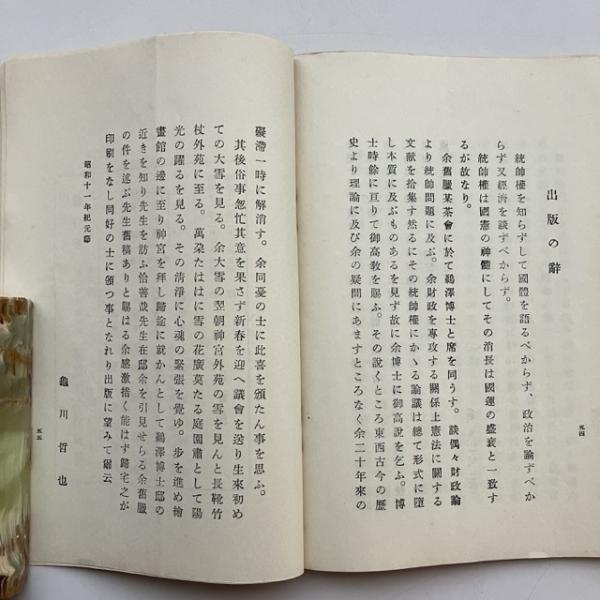 出版の辭
統帥權を知らずして國體を語るべからず、政治を論ずべか
らず又經濟を談ずべからず。
統帥權は國憲の神髓にしてその消長は國運の盛衰と一致す
るが故なり。
余舊臘某茶會に於て鵜澤博士と席を同うす。談偶々財政論
より統帥問題に及ぶ。余財政を專攻する關係上憲法に關する
文献を拾集す然るにその統帥權にかゝる論議は總て形式に墮
し本質に及ぶものあるを見ず故に余博士に御高説を乞ふ。博
士時餘に亘りて御高教を賜ふ。その説くところ東西古今の歴
史より理論に及び余の疑問にあますところなく余二十年來の
五四
礙滯一時に解消す。余同憂の士に此喜を頒たん事を思ふ。
其後俗事怱忙其意を果さず新春を迎へ議會を送り生來初め
ての大雪を見る。余大雪の翌朝神宮外苑の雪を見んと長靴竹
杖外苑に至る。萬朶たはゝに雪の花廣莫たる庭園肅として陽
光の躍るを見る。その清淨に心魂の緊張を覺ゆ。步を進め繪
畫館の邊に至り神宮を拜し歸途に就かんとして鵜澤博士邸の
近きを知り先生を訪ふ恰善哉先生在邸余を引見せらる余舊臘
の件を述ぶ先生舊稿ありと賜はる余感激措く能はず歸宅之が
印刷をなし同好の士に頒つ事となれり出版に望みて爾云
昭和十一年紀元節
龜川哲也
五五